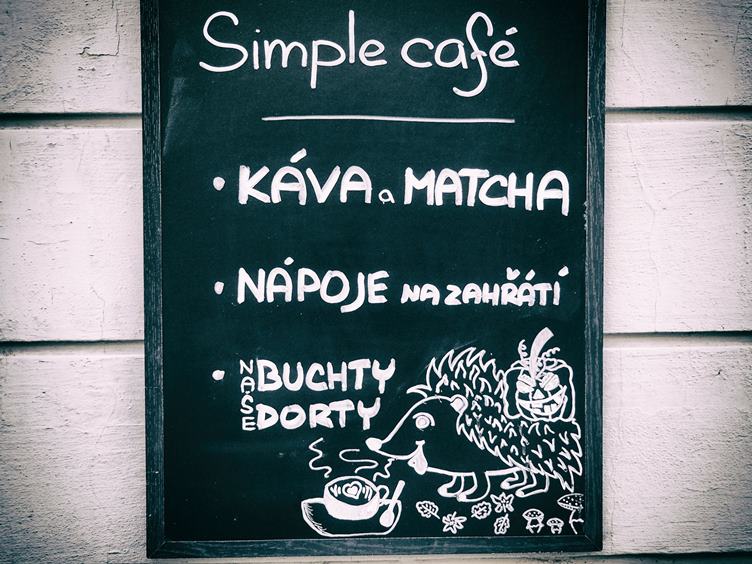 Simple café
• KÁVA a MATCHA
• NÁPOJE NA ZAHŘÁTÍ
• NAŠE BUCHTY
DORTY